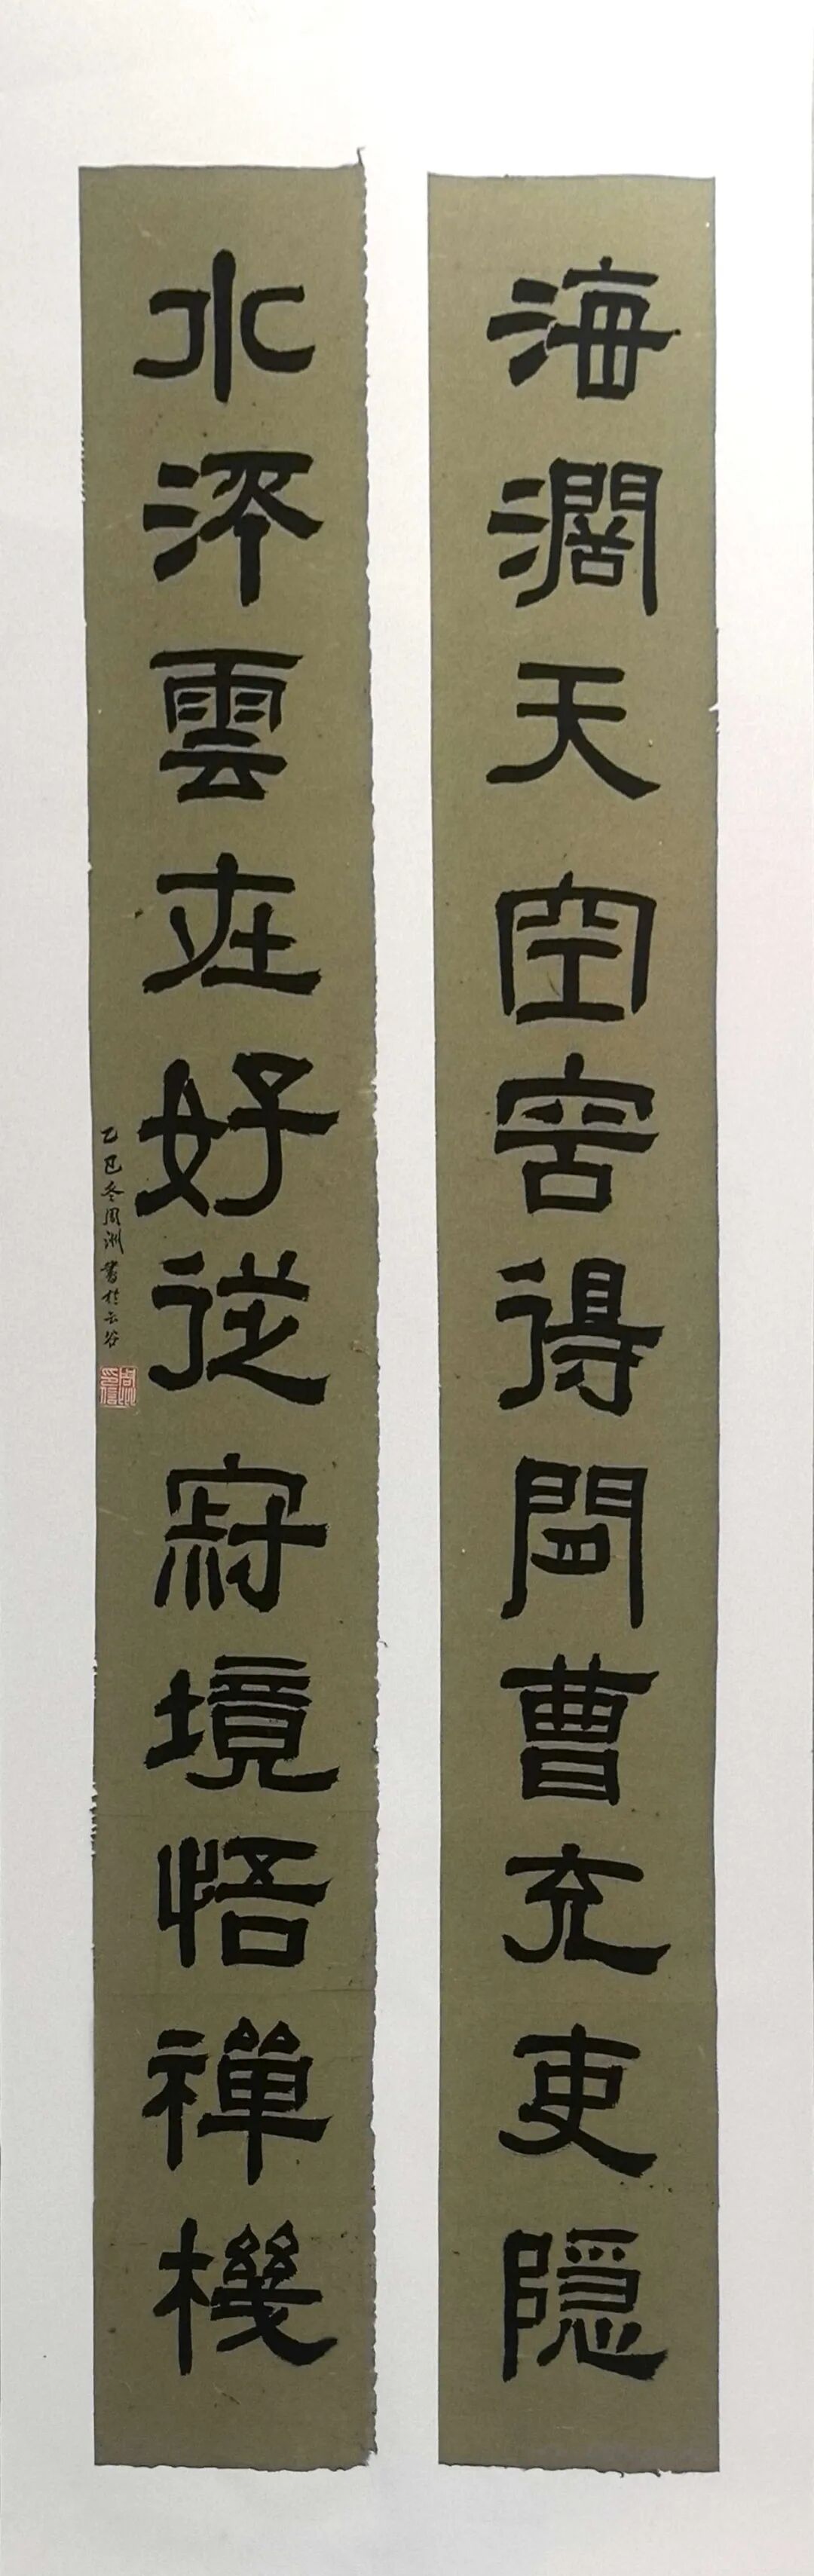 海濶天空容得閒曹充吏隱
水流雲在好從寂境悟禪機
乙巳冬周洲書於云谷